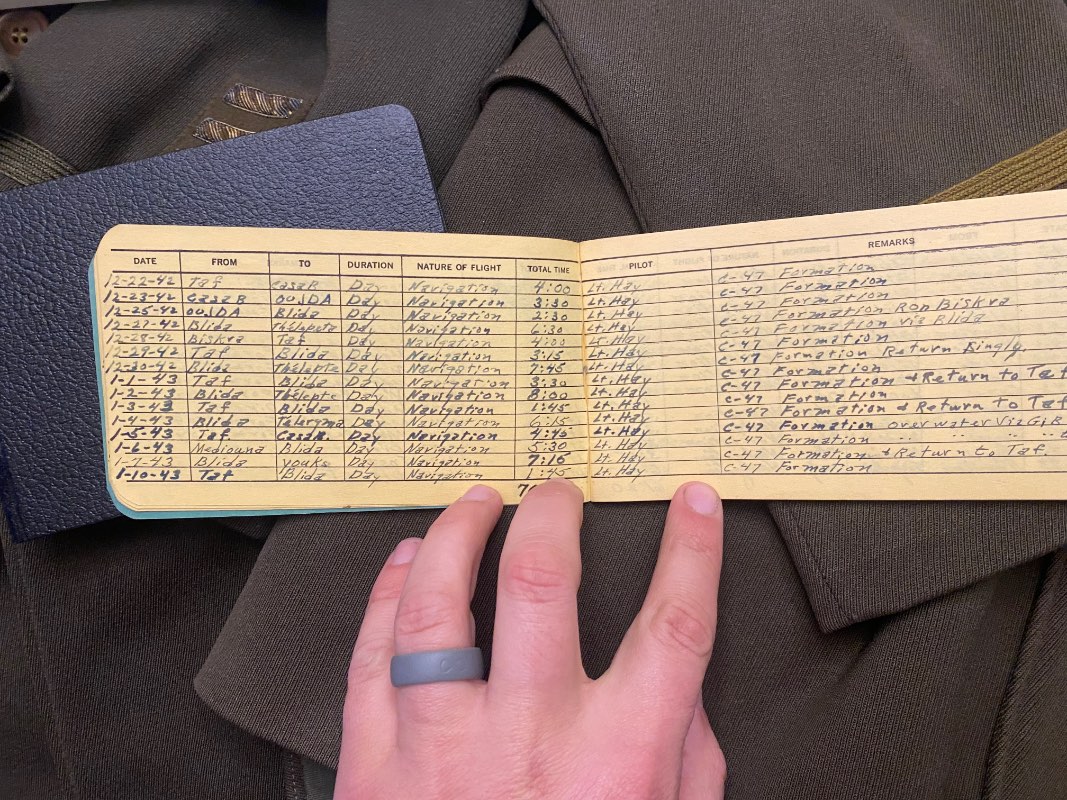 DATE FROM TO DURATION NATURE OF FLIGHT TOTAL TIME PILOT REMARKS
12-22-42 Taf CasaB Day Navigation 4:00 Lt. Hay C-47 Formation
12-23-42 CasaB OUJDA Day Navigation 3:30 Lt. Hay C-47 Formation
12-25-42 OUJDA Blida Day Navigation 2:30 Lt. Hay C-47 Formation
12-27-42 Blida Thelepte Day Navigation 6:30 Lt. Hay C-47 Formation RON Biskra
12-28-42 Biskra Taf Day Navigation 4:00 Lt. Hay C-47 Formation Via Blida
12-29-42 Taf Blida Day Navigation 3:15 Lt. Hay C-47 Formation
12-30-42 Blida Thelepte Day Navigation 7:45 Lt. Hay C-47 Formation Return Singly
1-1-43 Taf Blida Day Navigation 3:30 Lt. Hay C-47 Formation
1-2-43 Blida Thelepte Day Navigation 8:00 Lt. Hay C-47 Formation & Return to Taf
1-3-43 Taf Blida Day Navigation 1:45 Lt. Hay C-47 Formation
1-4-43 Blida Telergma Day Navigation 6:15 Lt. Hay C-47 Formation & Return to Taf
1-5-43 Taf CasaB. Day Navigation 4:45 Lt. Hay C-47 Formation over water Via GIB
1-6-43 Mediouna Blida Day Navigation 5:30 Lt. Hay C-47 Formation " " "
1-7-43 Blida youks Day Navigation 7:15 Lt. Hay C-47 Formation & Return to Taf.
1-10-43 Taf Blida Day Navigation 1:45 Lt. Hay C-47 Formation